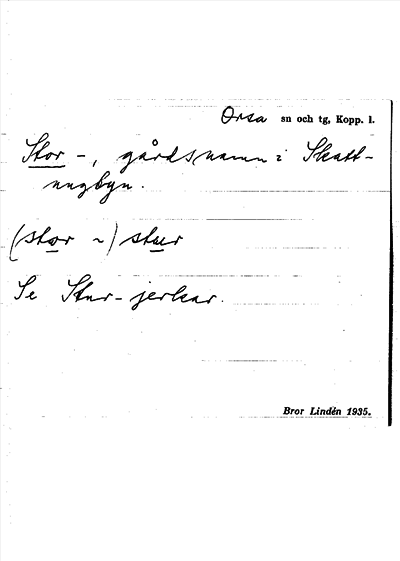 Orsa sn och tg, Kopp. l.
Stor -, gårdsnamn i Skatt-
ungbyn.
(stor ~) stur
Se Stur-jerkar.
Bror Lindén 1935.